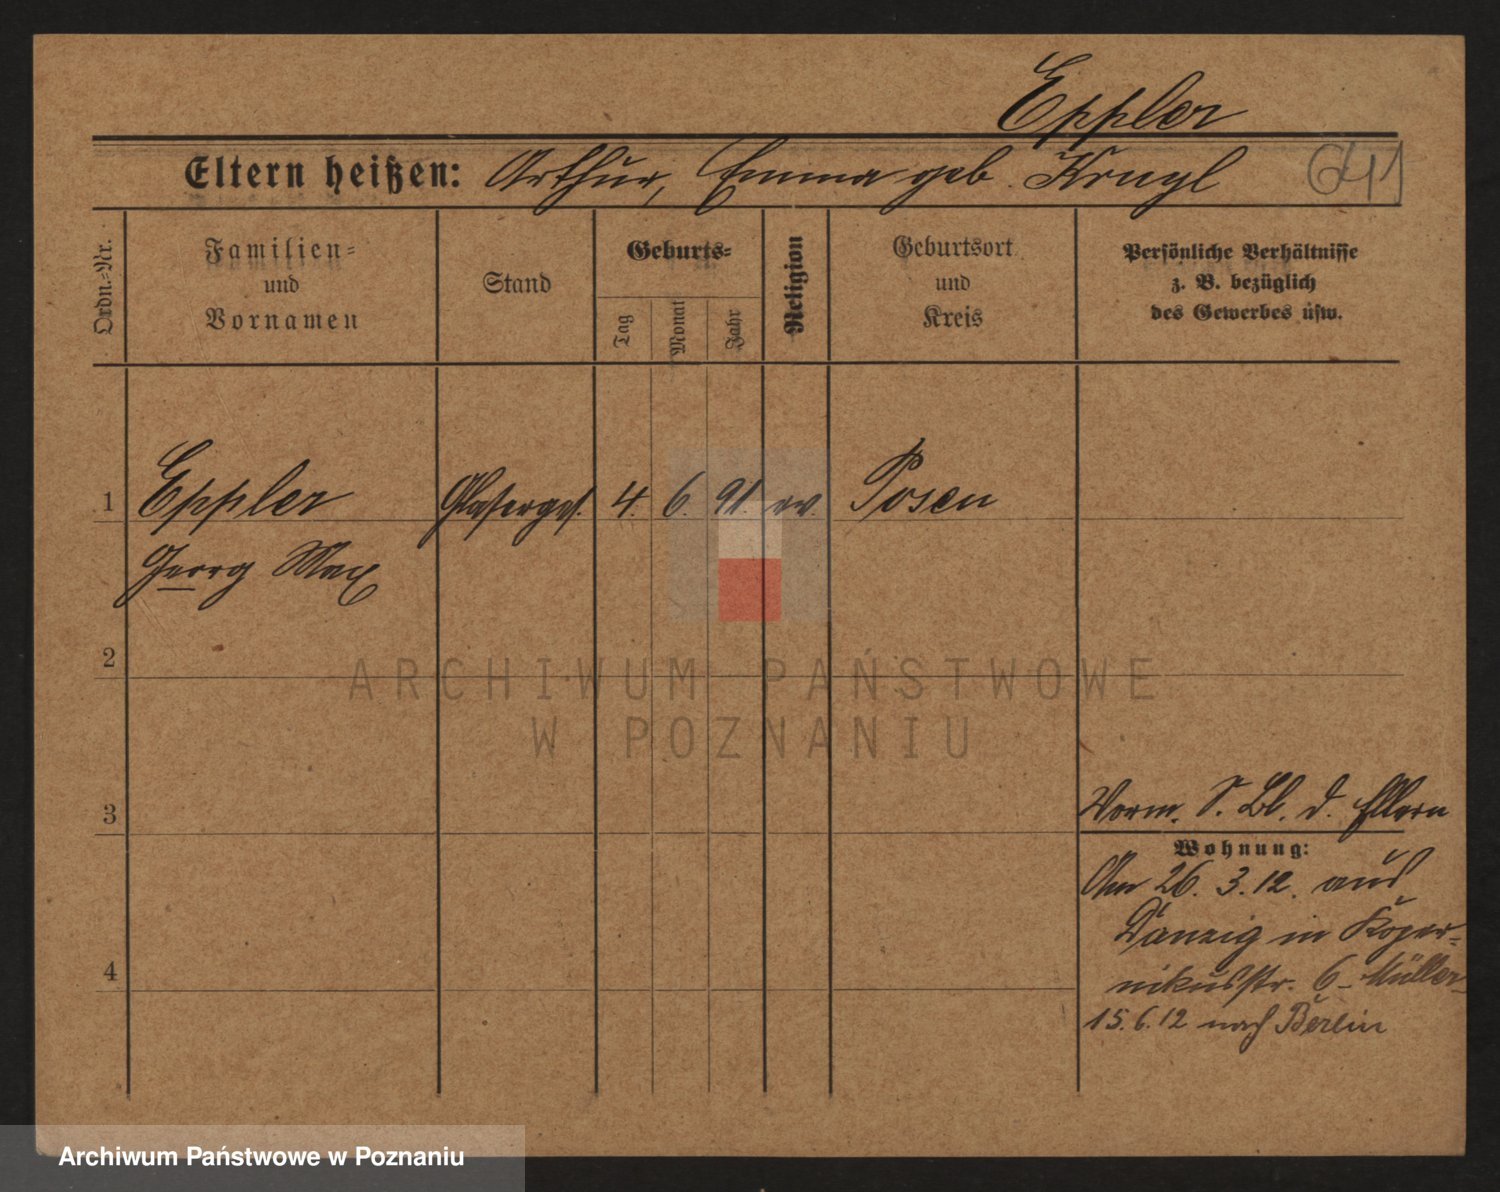 Eppler
Eltern heißen: Arthur, Emma geb. Krugl 641
Ordn.-Nr.
Familien-
und
Vornamen
Stand
Geburts-
Tag
Monat
Jahr
Religion
Geburtsort
und
Kreis
Persönliche Verhältnisse
z. B. bezüglich
des Gewerbes usw.
1 Eppler Glaserges. 4. 6. 91. ev. Posen
Georg Max
2
3
Vorm. S. Bl. d. Eltern
Wohnung:
Am 26. 3. 12. aus
Danzig in Koper-
4
nikusstr. 6 - Müller
15. 6. 12 nach Berlin
ARCHIWUM PAŃSTWOWE
W POZNANIU
Archiwum Państwowe w Poznaniu